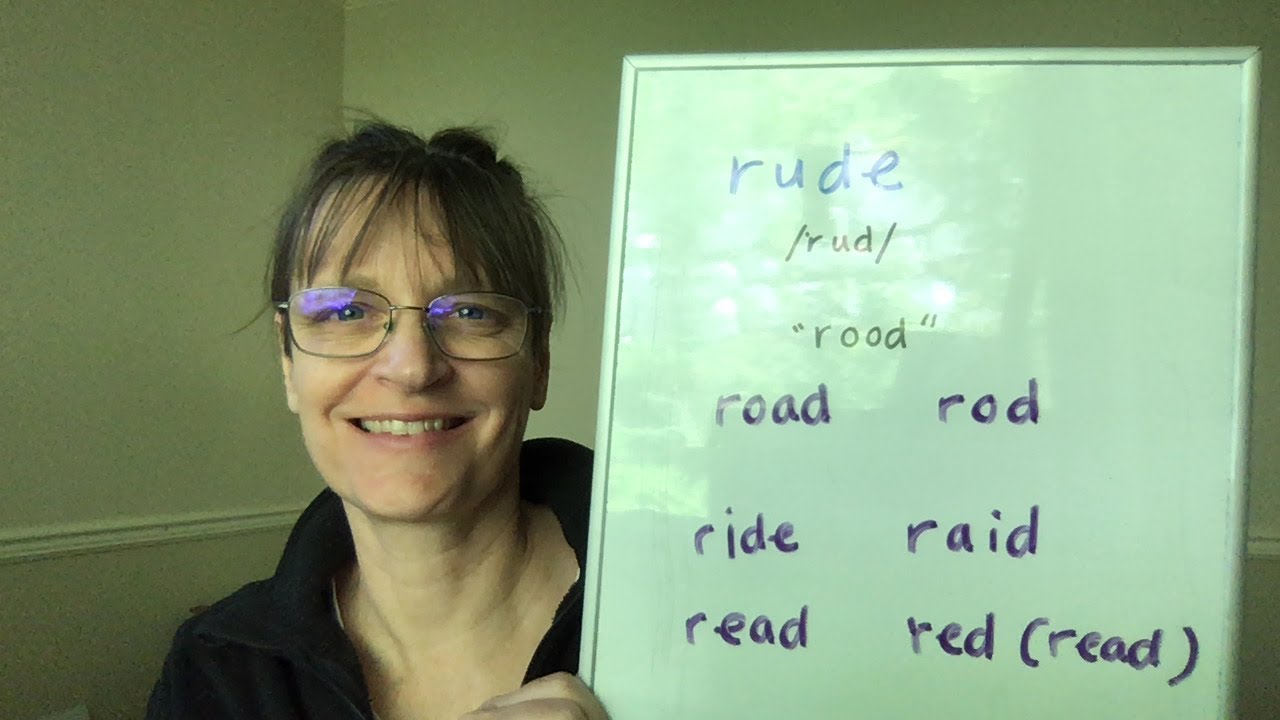 rude
/rud/
"rood"
road rod
ride raid
read red (read)